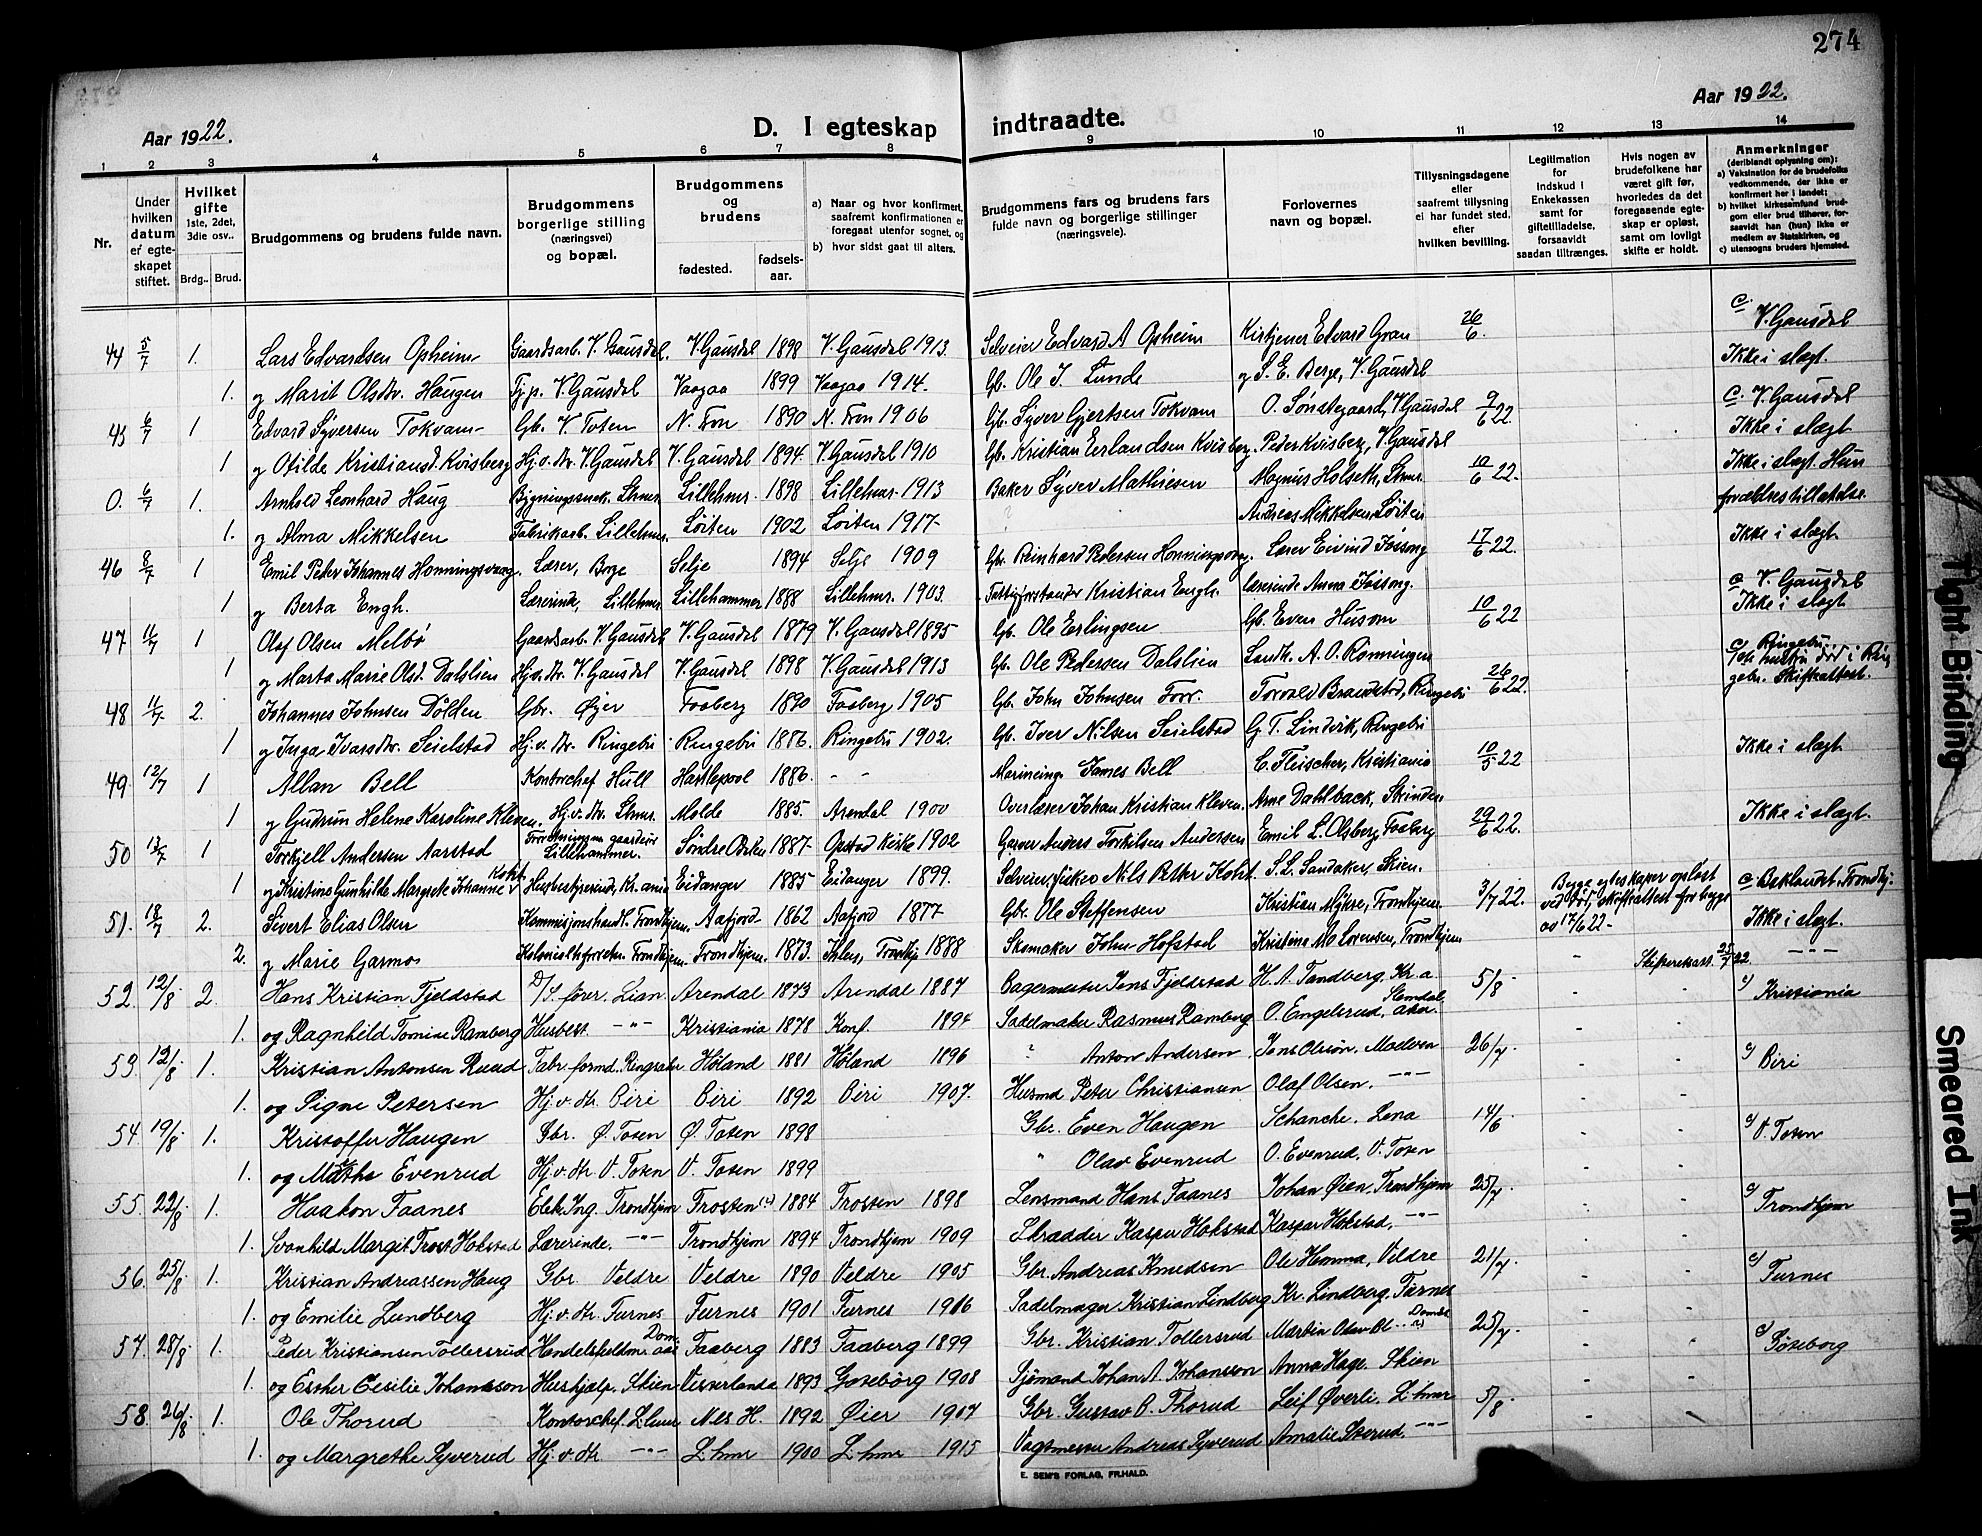 274
Aar 1922.
D. I egteskap indtraadte.
Aar 1922.
1 2 3 4 5 6 7 8 9 10 11 12 13 14
Nr.
Under hvilken datum er egte-skapet stiftet.
Hvilket gifte 1ste, 2det, 3die osv..
Brdg.. Brud.
Brudgommens og brudens fulde navn.
Brudgommens borgerlige stilling (næringsvei) og bopæl.
Brudgommens og brudens
fødested. fødsels-aar.
a) Naar og hvor konfirmert, saafremt konfirmationen er foregaat utenfor sognet, og
b) hvor sidst gaat til alters.
Brudgommens fars og brudens fars fulde navn og borgerlige stillinger (næringsveie).
Forlovernes navn og bopæl.
Tillysningsdagene eller saafremt tillysning ei har fundet sted, efter hvilken bevilling.
Legitimation for Indskud i Enkekassen samt for giftetilladelse, forsaavidt saadan tiltrænges.
Hvis nogen av brudefolkene har været gift før, hvorledes da det foregaaende egte-skap er opløst, samt om lovligt skifte er holdt.
Anmerkninger (deriblandt oplysning om):
a) Vaksination for de brudefolks vedkommende, der ikke er konfirmert her i landet;
b) hvilket kirkesamfund brud-gom eller brud tilhører, for-saavidt han (hun) ikke er medlem av Statskirken, og
c) utensogns bruders hjemsted.
44 5/7 1. Lars Edvardsen Opheim Gaardsarb. V. Gausdal. V. Gausdal 1898 V. Gausdal 1913. Selveier Edvard A Opheim Kirktjener Edvard Gran 26/6. c. V. Gausdal
1. og Marit Olsdtr. Haugen Tj.p. V. Gausdal Vaagaa 1899 Vaagaa 1914. Gb. Ole I. Lunde og S. E. Berge, V. Gausdal Ikke i slægt.
45 6/7 1 Edvard Syversen Tokvam Gb. V. Toten N. Fron 1890 N. Fron 1906 Gb. Syver Gjertsen Tokvam O. Sønstegaard, V. Gausdal 9/6 22. c. V. Gausdal
1 og Otilde Kristiansd. Kvisberg Hj.v.dtr. V. Gausdal V. Gausdal 1894. V. Gausdal 1910 Gb. Kristian Erlandsen Kvisberg. Peder Kvisberg, V. Gausdal Ikke i slægt
0. 6/7 1. Arnhold Leonhard Haug Bygningssnek. Lhmr. Lillehmr. 1898 Lillehmr. 1913 Baker Syver Mathiesen Magnus Holseth, Lhmr. 10/6 22. Ikke i slægt. Hun
1. og Alma Mikkelsen Fabrikarb. Lillehmr. Løiten 1902 Løiten 1917 ? Andreas Mikkelsen, Løiten forældres tilladelse.
46 8/7 1 Emil Peder Johannes Honningsvaag. Lærer, Borge Selje 1894 Selje 1909 Gb. Reinhard Pedersen Honningsvaag. Lærer Eivind Jøssong 17/6 22. Ikke i slægt
1 og Berta Engh. Lærerinde, Lillehmr. Lillehammer 1888 Lillehmr. 1903. Fattigforstander Kristian Engh. Lærerinde Anna Jøssong. c. V. Gausdal
47 11/7 1 Olaf Olsen Melbø Gaardsarb. V. Gausdal V. Gausdal 1879 V. Gausdal 1895 Gb. Ole Erlingsen Gb. Even Husom 10/6 22 Ikke i slægt
1 og Marta Marie Olsd. Dalslien Hj.v.dtr. V. Gausdal V. Gausdal 1898 V. Gausdal 1913 Gb. Ole Pedersen Dalslien Landh. A. O. Rønningen c) Ringebu
48 11/7. 2. Johannes Johnsen Dølden Gbr. Øyer Faaberg 1890 Faaberg 1905 Gb. John Johnsen Torvald Brandstad, Ringebu 26/6 22. hustru død i Ringebu. Skifteattest.
1 og Inga Ivarsdtr. Seielstad Hj.v.dtr. Ringebu Ringebu 1886. Ringebu 1902. Gb. Iver Nilsen Seielstad G. T. Lindvik, Ringebu
49 12/7 1 Allan Bell Kontorchef Hull Hartlepool 1886. - - Marineing. James Bell C. Fleischer, Kristiania 10/5 22 Ikke i slægt
1 og Gudrun Helene Karoline Kleven. Hj.v.dtr. Lhmr. Molde 1885. Arendal 1900 Overlærer Johan Kristian Kleven. Arne Dahlback,
50 13/7 1 Torkjell Andersen Aarstad Forretningsm. Lillehammer. 1887 Opstad Kirke 1902 Garver Anders Torkilsen Andersen Emil L. Olsberg, Faaberg 29/6 22. Ikke i slægt.
1 og Kristine Gunhilde Margrete Johanne Kohl Husbestyrerinde, Kr.ania Eidanger 1885 Eidanger 1899. Selveier, fisker Nils Peter Kohl. S. L. Sandaker, Skien.
51. 18/7 2. Sivert Elias Olsen Kommisjonshandl. Trondhjem. Aafjord 1862 Aafjord 1877 Gbr. Ole Steffensen Kristian Myhre, Trondhjem. 3/7 22. Begge egteskaper opløst ved død, skifteattest for begge av 17/6 22 c Baklandet, Trondhj.
2. og Marie Garmo Kolonialforretn. Trondhjem. Trondhjem. 1873. Ihlen, Trondhj 1888 Skomaker John Hofstad Kristine M. Lorensen, Trondhjem Ikke i slægt.
52. 12/8 2. Hans Kristian Fjeldstad D/S fører. Lian Arendal 1873 Arendal 1887 Bagermester Jens Fjeldstad H. A. Tandberg. Kr.a 5/8 - Skifteretsatt. 25/7 22 c) Kristiania
1. og Ragnhild Tomine Ramberg Husbest. -"- Kristiania 1878 Konf. 1894 Sadelmaker Rasmus Ramberg O. Engelsrud,
53. 12/8 1. Kristian Antonsen Ruud Fabr. formd. Ringsaker Høland 1881 Høland 1896 ? Anton Andersen Jens Olsson. Moelven 26/7. c) Biri
1. og Signe Petersen Hj.v.dtr. Biri Biri 1892 Biri 1907. Husmd Peter Christiansen Olaf Olsen. -"-
54. 19/8 1. Kristoffer Haugen Gbr. Ø. Toten Ø. Toten 1898 Gbr. Even Haugen Schanche. Lena 14/6 c) V. Toten
1. og Mathe Evenrud Hj.v.dtr. V. Toten V. Toten 1899 " Olav Evenrud O. Evenrud, V. Toten
55. 22/8 1. Haakon Faanes Elek. Ing. Trondhjem Frosten (?) 1884 Frosten 1898 Lensmand Hans Faanes Johan Øien, Trondhjem 25/7. c) Trondhjem
1. Svanhild Margit Trost Hokstad Lærerinde. -"- Trondhjem 1894 Trondhjem 1909 Skrædder Kasper Hokstad Kaspar Hokstad. -"-
56. 25/8 1. Kristian Andreassen Haug Gbr. Veldre Veldre 1890 Veldre 1905 Gbr. Andreas Knudsen Ole Hemma, Veldre 21/7. c) Furnes
1. og Emilie Lundberg Hj.v.dtr. Furnes Furnes 1901 Furnes 1916 Sadelmager Kristian Lindberg Kr. Lindberg. Furnes
57. 28/8 1. Peder Kristiansen Tollersrud Handelsfuldm. Dom-aas Faaberg 1883 Faaberg 1899 Gbr. Kristian Tollersrud Martin Olav 25/7. c) Gøteborg
1. og Esther Cecilie Johansson Hushjælp. Skien Vesterlanda 1893 Gøteborg 1908 Sjømand Johan A. Johansson Anna Hage. Skien
58. 26/8 1. Ole Thorud Kontorchef. L.hmr Nes H. 1892 Øier 1907 Gbr. Gustav O. Thorud Leif Øverli. L.hmr 5/8.
1. og Margrethe Syverud Hj.v.dtr. -"- L.hmr 1900 L.hmr 1915 Vagtmester Andreas Syverud Amalie Skerud. -"-
E. SEM'S FORLAG, FR.HALD.
Tight Binding
Smeared Ink